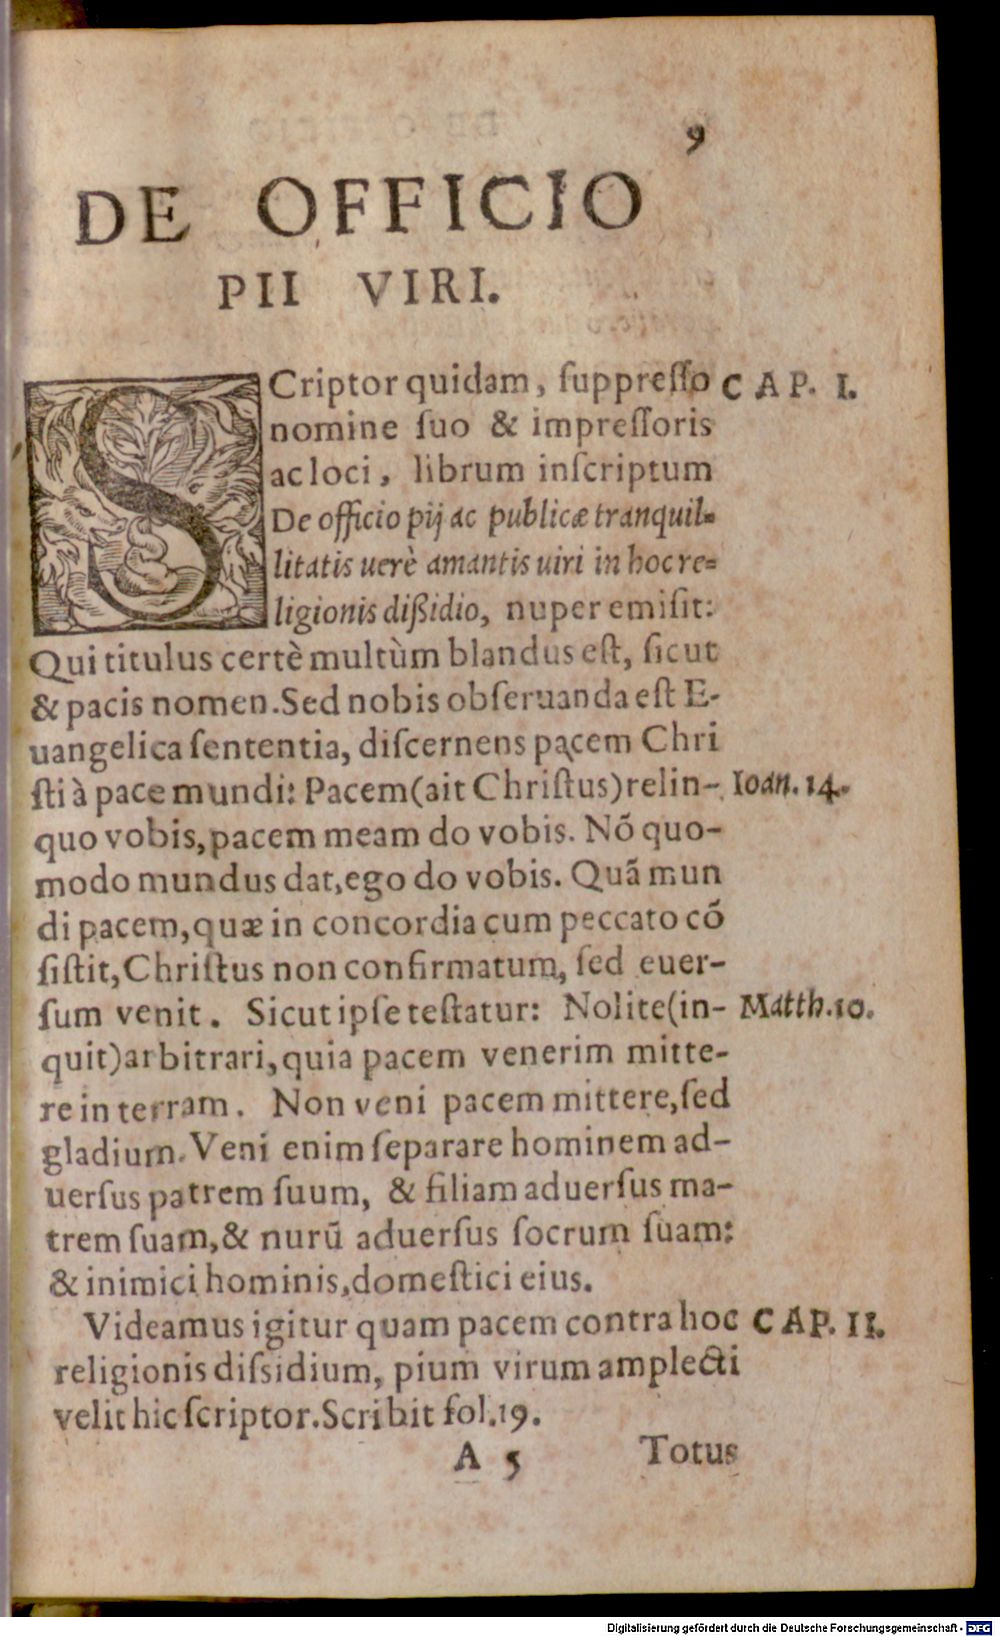 9
DE OFFICIO
PII VIRI.
SCriptor quidam, ſuppreſſo CAP. I.
nomine ſuo & impreſſoris
ac loci, librum inſcriptum
De officio pij ac publicæ tranquil-
litatis uerè amantis uiri in hoc re-
ligionis dißidio, nuper emiſit:
Qui titulus certè multùm blandus eſt, ſicut
& pacis nomen. Sed nobis obſeruanda eſt E-
uangelica ſententia, diſcernens pacem Chri
ſti à pace mundi: Pacem (ait Chriſtus) relin- Ioan. 14.
quo vobis, pacem meam do vobis. Nõ quo-
modo mundus dat, ego do vobis. Quã mun
di pacem, quæ in concordia cum peccato cõ
ſiſtit, Chriſtus non confirmatum, ſed euer-
ſum venit. Sicut ipſe teſtatur: Nolite (in- Matth. 10.
quit) arbitrari, quia pacem venerim mitte-
re in terram. Non veni pacem mittere, ſed
gladium. Veni enim ſeparare hominem ad-
uerſus patrem ſuum, & filiam aduerſus ma-
trem ſuam, & nurũ aduerſus ſocrum ſuam:
& inimici hominis, domeſtici eius.
Videamus igitur quam pacem contra hoc CAP. II.
religionis diſsidium, pium virum amplecti
velit hic ſcriptor. Scribit fol. 19.
A 5 Totus
Digitalisierung gefördert durch die Deutsche Forschungsgemeinschaft - DFG